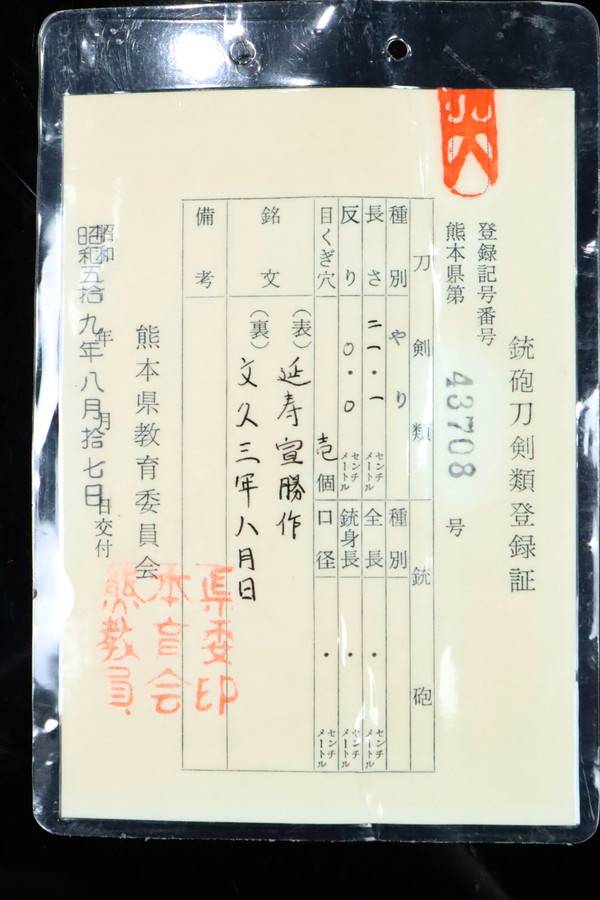 銃砲刀剣類登録証
登録記号番号
熊本県第 43708 号
刀剣類
銃砲
種別 やり
種別
長さ 二一.一 センチメートル
全長 . センチメートル
反り 〇.〇 センチメートル
銃身長 . センチメートル
目くぎ穴 壱個
口径 . センチメートル
銘文
(表) 延寿宣勝作
(裏) 文久三年八月日
備考
熊本県教育委員会
昭和 年 月 日交付
昭和五拾九年八月拾七日
県委印
本育会
熊教員